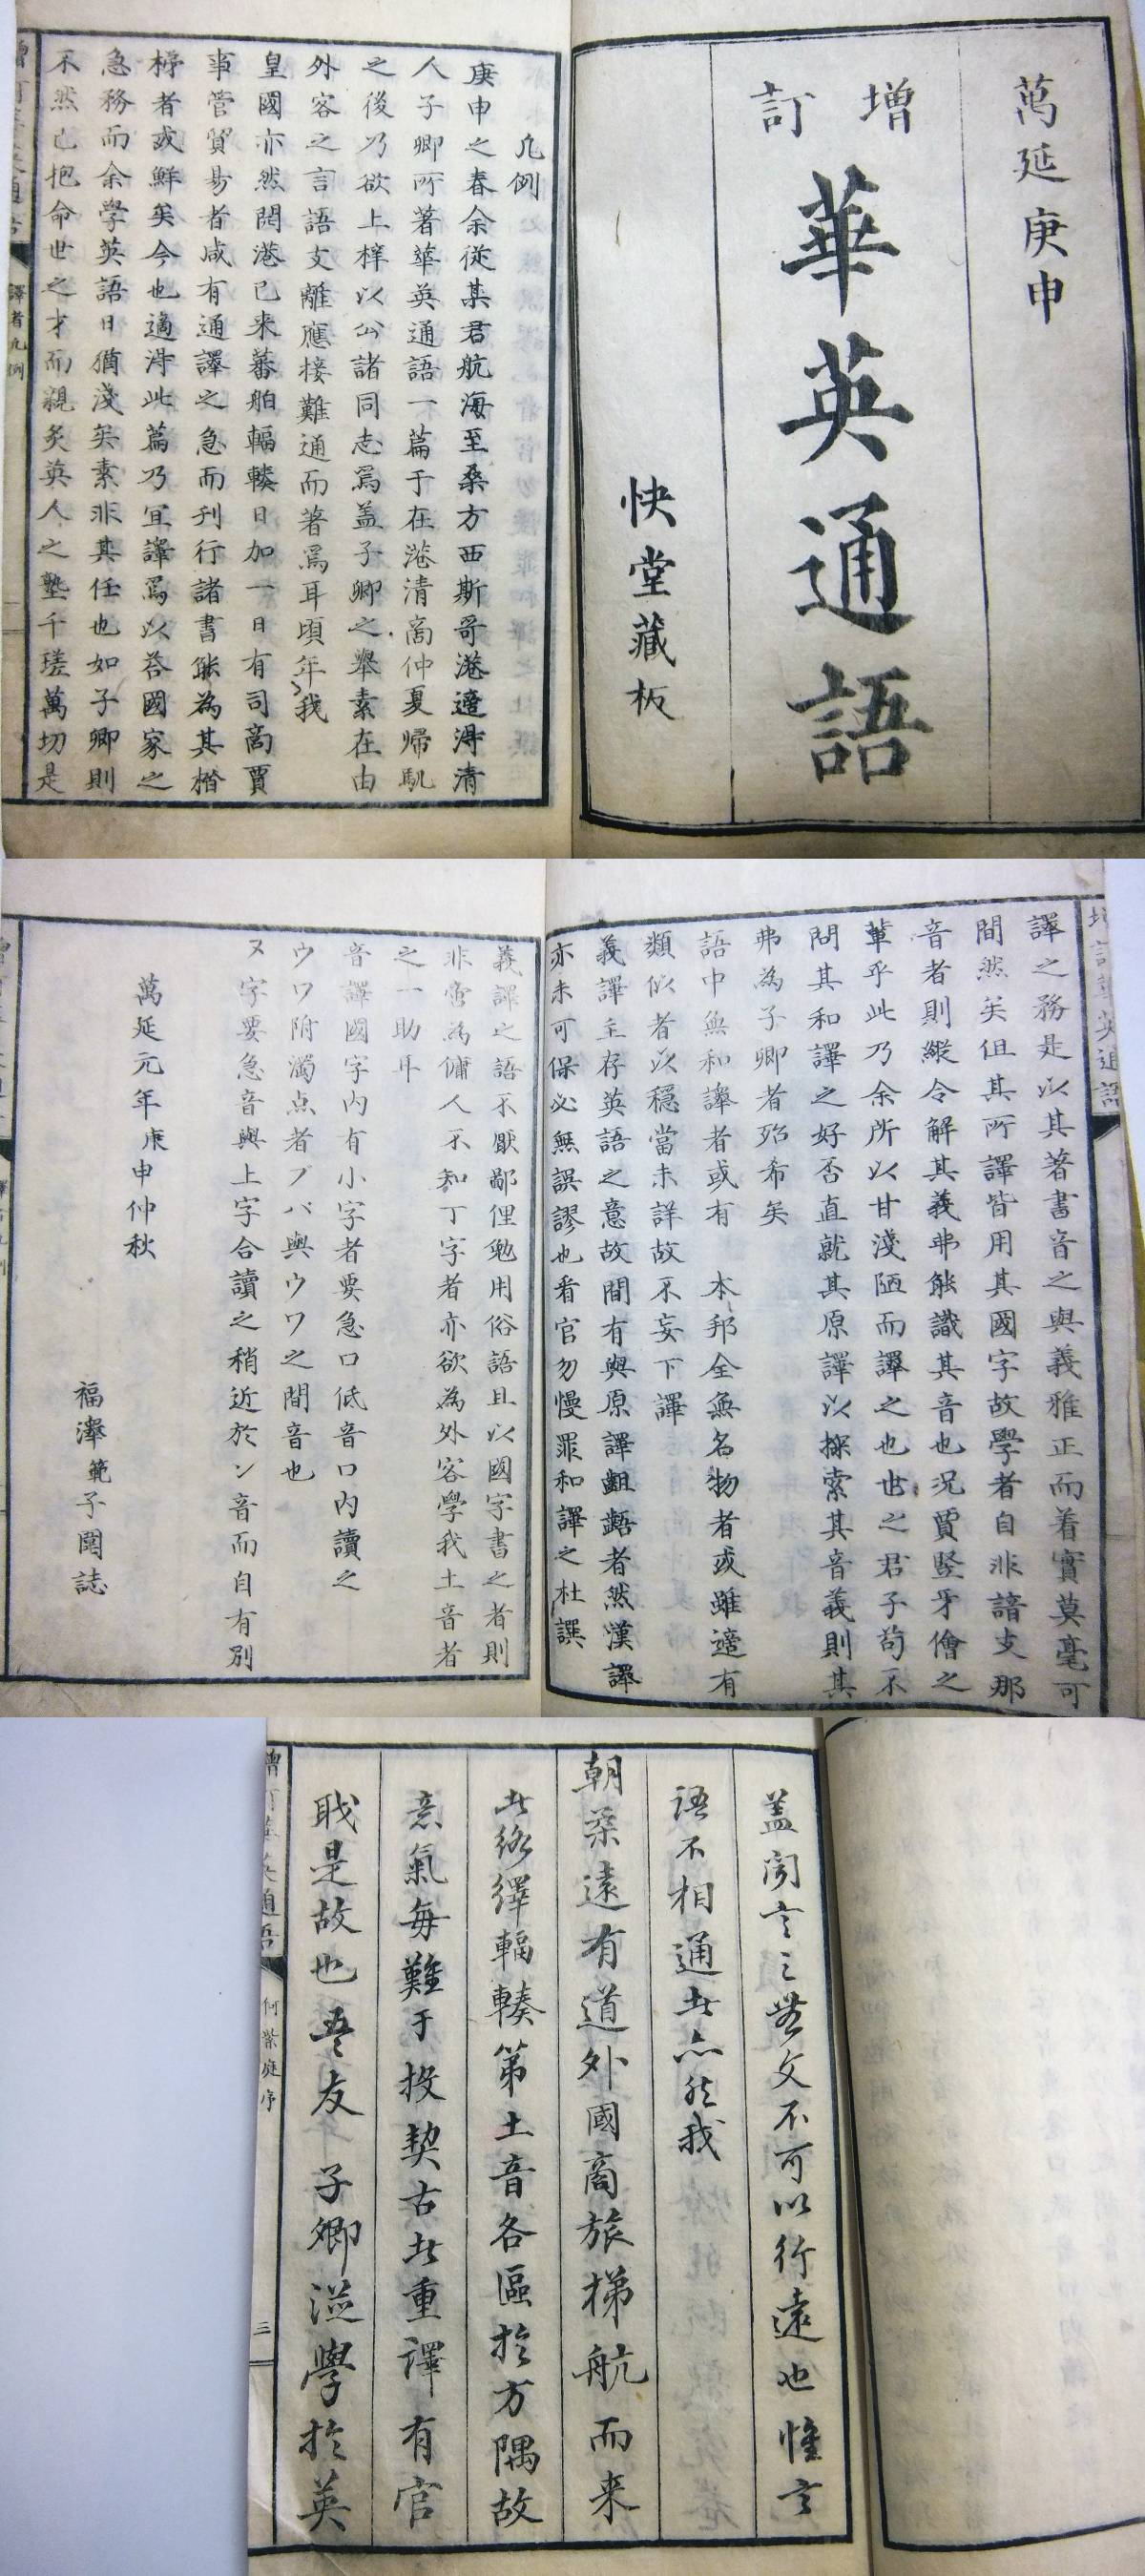 萬延庚申
增訂
華英通語
快堂藏板
凡例
庚申之春余從某君航海至桑方西斯哥港適得清
人子卿所著華英通語一篇于在港清商仲夏歸帆
之後乃欲上梓以公諸同志焉蓋子卿之舉素在由
外客之言語支離應接難通而著焉耳頃年我
皇國亦然開港已来蕃舶輻輳日加一日有司商賈
事管貿易者咸有通譯之急而刊行諸書能為其楷
梯者或鮮矣今也適得此篇乃宜譯焉以答國家之
急務而余學英語日猶淺矣素非其任也如子卿則
不然已抱命世之才而親炙英人之塾千瑳萬切是
譯者凡例
譯之務是以其著書音之與義雅正而着實莫毫可
間然矣但其所譯皆用其國字故學者自非諳支那
音者則縱令解其義弗能識其音也況賈竪牙儈之
輩乎此乃余所以甘淺陋而譯之也世之君子苟不
問其和譯之好否直就其原譯以探索其音義則其
弗為子卿者殆希矣
語中無和譯者或有 本邦全無名物者或雖適有
類似者以穩當未詳故不妄下譯
義譯主存英語之意故間有與原譯齟齬者然漢譯
亦未可保必無誤謬也看官勿慢罪和譯之杜譔
義譯之語不厭鄙俚勉用俗語且以國字書之者則
非啻為傭人不知丁字者亦欲為外客學我土音者
之一助耳
音譯國字内有小字者要急口低音口内讀之
ウワ附濁点者ブバ與ウワ之間音也
ヌ字要急音與上字合讀之稍近於ン音而自有別
萬延元年庚申仲秋
福澤範子圍誌
蓋聞言之無文不可以行遠也惟言
語不相通者亦然我
朝柔遠有道外國商旅梯航而来
者絡繹輻輳第土音各區於方隅故
意氣每難于投契古者重譯有官
職是故也吾友子卿從學於英
何紫庭序
三